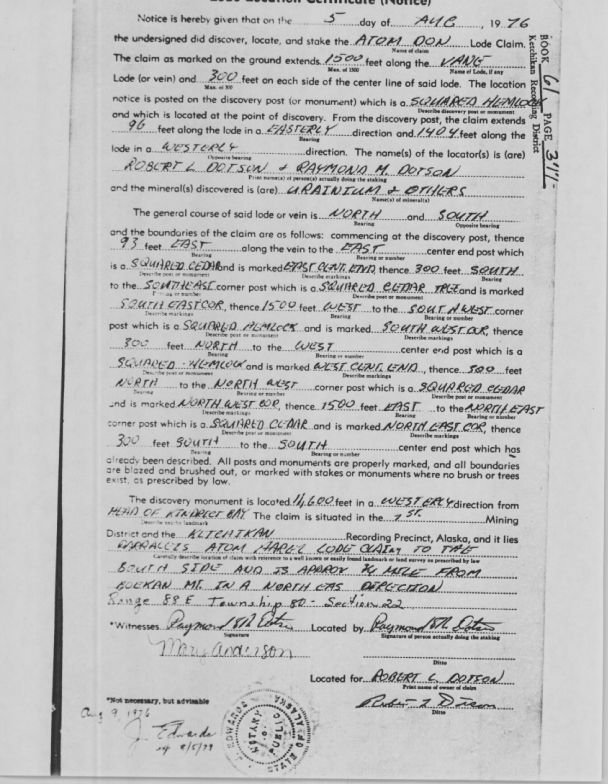 Lode Location Certificate (Notice)
Notice is hereby given that on the 5 day of AUG, 1976
the undersigned did discover, locate, and stake the ATOM DON Lode Claim.
Name of claim
The claim as marked on the ground extends 1500 feet along the VANE
Max. of 1500 Name of Lode, if any
Lode (or vein) and 300 feet on each side of the center line of said lode. The location
Max. of 300
notice is posted on the discovery post (or monument) which is a SQUARED HEMLOCK
Describe discovery post or monument
and which is located at the point of discovery. From the discovery post, the claim extends
96 feet along the lode in a EASTERLY direction and 1404 feet along the
Bearing
lode in a WESTERLY direction. The name(s) of the locator(s) is (are)
Opposite bearing
ROBERT L DOTSON & RAYMOND M. DOTSON
Print name(s) of person(s) actually doing the staking
and the mineral(s) discovered is (are) URAINIUM & OTHERS
Name(s) of mineral(s)
The general course of said lode or vein is NORTH and SOUTH
Bearing Opposite bearing
and the boundaries of the claim are as follows: commencing at the discovery post, thence
93 feet EAST along the vein to the EAST center end post which
Bearing Bearing or number
is a SQUARED CEDAR and is marked EAST CENT. END, thence 300 feet SOUTH
Describe post or monument Describe markings Bearing
to the SOUTHEAST corner post which is a SQUARED CEDAR TREE and is marked
Bearing or number Describe post or monument
SOUTH EAST COR, thence 1500 feet WEST to the SOUTHWEST corner
Describe markings Bearing Bearing or number
post which is a SQUARED HEMLOCK and is marked SOUTH WEST COR, thence
Describe post or monument Describe markings
300 feet NORTH to the WEST center end post which is a
Bearing Bearing or number
SQUARED HEMLOCK and is marked WEST CENT. END, thence 300 feet
Describe post or monument Describe markings
NORTH to the NORTH WEST corner post which is a SQUARED CEDAR
Bearing Bearing or number Describe post or monument
and is marked NORTH WEST COR, thence 1500 feet EAST to the NORTH EAST
Describe markings Bearing Bearing or number
corner post which is a SQUARED CEDAR and is marked NORTH EAST COR, thence
Describe post or monument Describe markings
300 feet SOUTH to the SOUTH center end post which has
Bearing Bearing or number
already been described. All posts and monuments are properly marked, and all boundaries
are blazed and brushed out, or marked with stakes or monuments where no brush or trees
exist, as prescribed by law.
The discovery monument is located 11,600 feet in a WESTERLY direction from
HEAD OF KINDRICT BAY The claim is situated in the 1 ST. Mining
Describe nearby landmark
District and the KETCHIKAN Recording Precinct, Alaska, and it lies
PARRALELS ATOM MABEL LODE CLAIM TO THE
Carefully describe location of claim with reference to a well known or easily found landmark or land survey as prescribed by law
SOUTH SIDE AND IS APPROX 3/4 MILE FROM
BOEKAN MT. IN A NORTH EAS DIRECTION
Range 88 E Township 80 - Section 22
*Witnesses Raymond M Dotson Located by Raymond M Dotson
Signature Signature of person actually doing the staking
Mary Anderson
Ditto
Located for ROBERT L. DOTSON
Print name of owner of claim
*Not necessary, but advisable Robert L Dotson
Ditto
Aug 9, 1976
J. Edwards
8/5/79
EDWARDS
NOTARY
PUBLIC
STATE OF ALASKA
BOOK 61 PAGE 311
Ketchikan Recording District